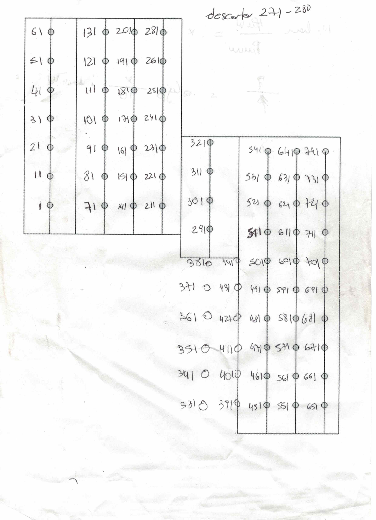 descarter 271-280
61 131 201 281
51 121 191 261
41 111 181 251
31 101 171 241
21 91 161 231
11 81 151 221
1 71 141 211
321
311
301
291
541 641 741
531 631 731
521 621 721
511 611 711
381 441 501 601 701
371 431 491 591 691
361 421 481 581 681
351 411 471 571 671
341 401 461 561 661
331 391 451 551 651